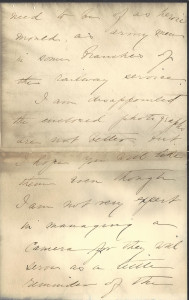 need to one of us here
would, as using
in some branches of
the railway service.
I am disappointed
the enclosed photographs
are not better but
I hope you will like
them even though
I am not very expert
in managing a
camera for they will
serve as a little
reminder of the